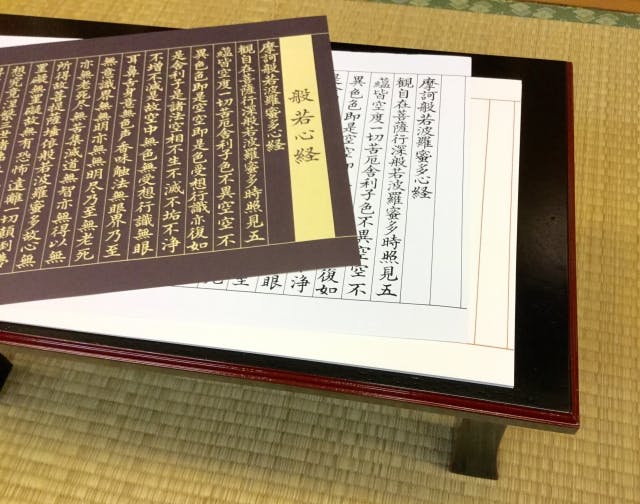 般若心経
摩訶般若波羅蜜多心経
観自在菩薩行深般若波羅蜜多時照見五
蘊皆空度一切苦厄舎利子色不異空空不
異色色即是空空即是色受想行識亦復如
是舎利子是諸法空相不生不滅不垢不浄
不増不減是故空中無色無受想行識無眼
耳鼻舌身意無色声香味触法無眼界乃至
無意識界無無明亦無無明尽乃至無老死
亦無老死尽無苦集滅道無智亦無得以無
所得故菩提薩埵依般若波羅蜜多故心無
罣礙無罣礙故無有恐怖遠離一切顛倒夢
想究竟涅槃三世諸
摩訶般若波羅蜜多心経
観自在菩薩行深般若波羅蜜多時照見五
蘊皆空度一切苦厄舎利子色不異空空不
異色色即是空空
復如
是
浄
眼
至